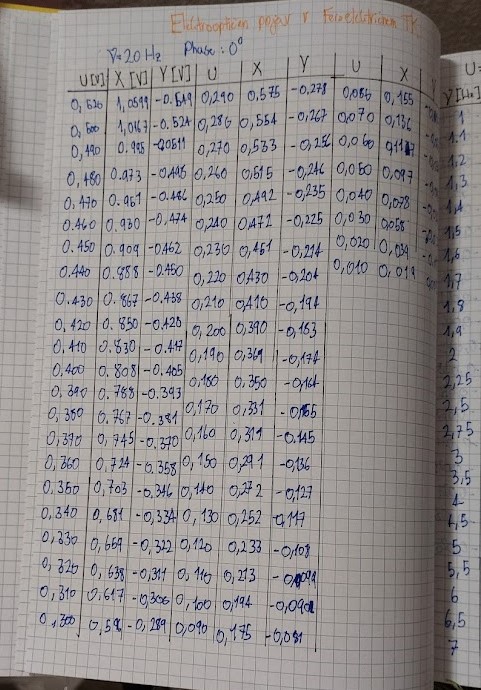 Elektrooptični pojav v Feroelektričnem TK
ν=20 Hz Phase: 0°
U[V] X [V] Y[V] U X Y U X Y
0,520 1,0599 -0.549 0,290 0,575 -0.278 0,086 0,155
0,500 1,0167 -0.524 0,280 0,554 -0,267 0,070 0,136
0,490 0.995 -0.0511 0,270 0,533 -0,256 0,060
0,480 0.973 -0.498 0,260 0,515 -0,246 0,050 0,097
0,470 0.951 -0.486 0,250 0,492 -0,235 0,040 0,078
0.460 0.930 -0.474 0,240 0,472 -0,225 0,030 0,058
0.450 0.909 -0.462 0,230 0,451 -0,214 0,020 0,039
0.440 0.888 -0.450 0,220 0,430 -0,204 0,010 0,019
0.430 0.867 -0.438 0,210 0,410 -0,194
0,420 0.850 -0.428 0,200 0,390 -0,183
0,410 0.830 -0.417 0,190 0,369 -0,174
0,400 0.808 -0.405 0,180 0,350 -0,164
0.390 0.788 -0.393 0,170 0,331 -0,155
0,380 0.767 -0.381 0,160 0,311 -0.145
0,370 0,745 -0.370 0,150 0,291 -0,136
0,360 0,724 -0.358 0,140 0,272 -0,127
0.350 0,703 -0.346 0,130 0,252 -0,117
0,340 0,681 -0,334 0,120 0,233 -0,108
0,330 0,659 -0,322 0,110 0,213
0,320 0,638 -0,311 0,100 0,194
0,310 0,617 -0,300 0,090 0,175 -0,081
0,300 0,596 -0,289
U=
ν[Hz]
1
1.1
1,2
1,3
1,4
1,5
1,6
1,7
1,8
1,9
2
2,25
2,5
2,75
3
3,5
4
4,5
5
5,5
6
6,5
7